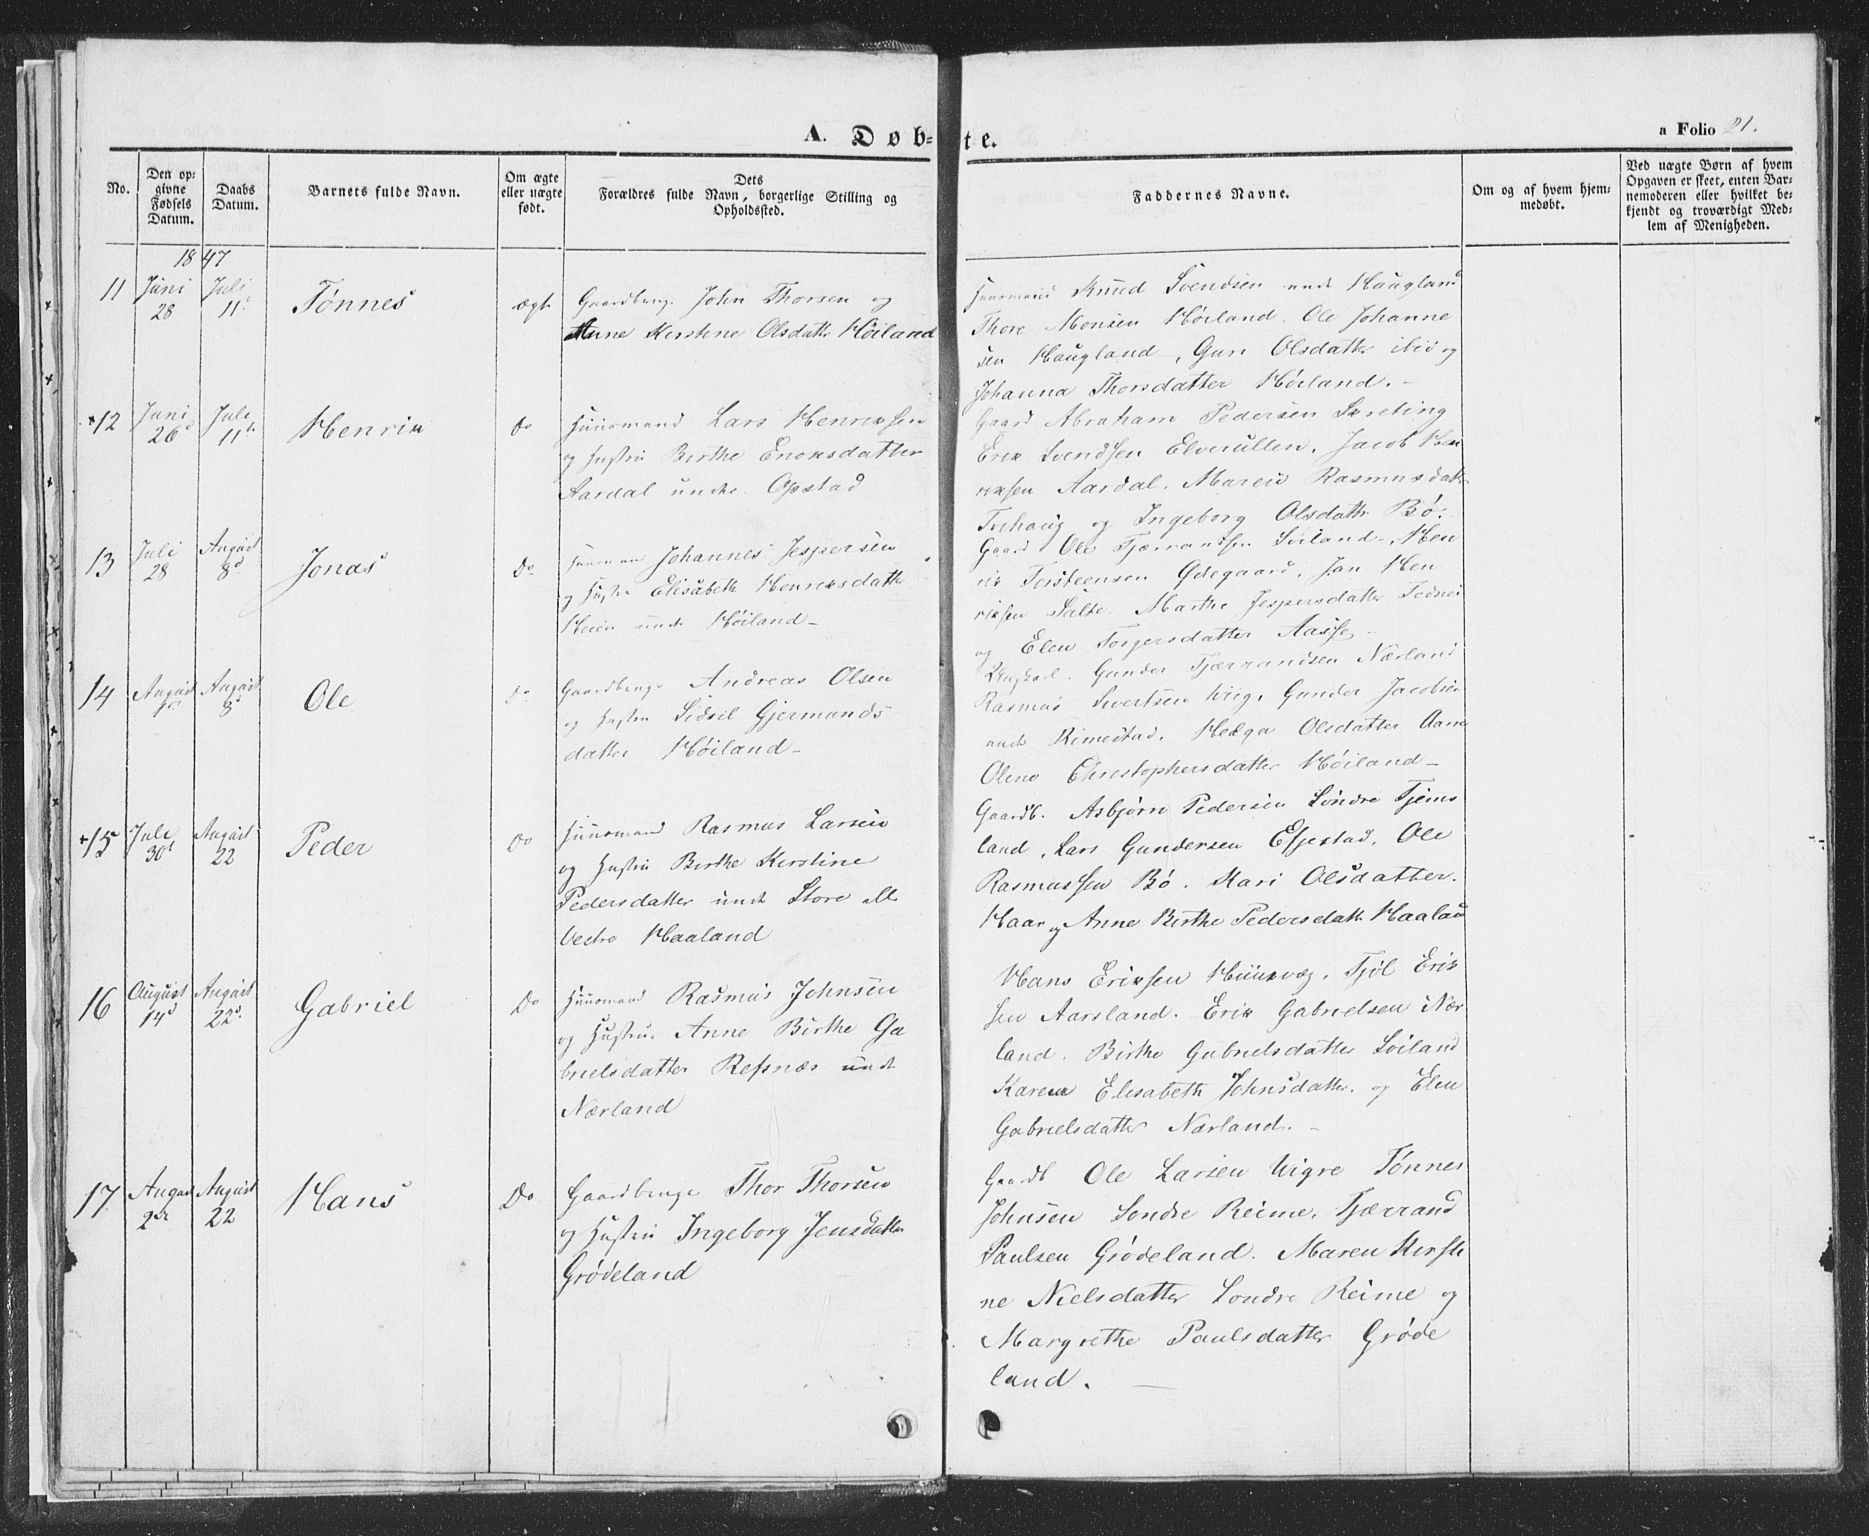 A. Døb-
te.
a Folio 21.
No.
Den op-
givne
Fødsels
Datum.
Daabs
Datum.
Barnets fulde Navn.
Om ægte
eller uægte
født.
Dets
Forældres fulde Navn, borgerlige Stilling og
Opholdssted.
Faddernes Navne.
Om og af hvem hjem-
medøbt.
Ved uægte Børn af hvem
Opgaven er skeet, enten Bar-
nemoderen eller hvilket be-
kjendt og troværdigt Med-
lem af Menigheden.
1847
11
Juni
28
Juli
11
Tønnes
ægt
Gaardbrug. John Thorsen og
Anne Kerstine Olsdatter Høiland
Huusmand Knud Svendsen undr Haugland
Thore Monsen Høiland. Ole Johanne
sen Haugland, Guri Olsdatter ibid og
Johanna Thorsdatter Høiland. -
+12
Juni
26
Juli
11
Henrik
do
Huusmand Lars Henriksen
og Hustru Birthe Enoksdatter
Aardal under Opstad
Gaard Abraham Pedersen Skreting
Erik Svendsen Elverullen, Jacob Hen
riksen Aardal. Maren Rasmusdatter
Tvihaug og Ingeborg Olsdatter Bø.
13
Juli
28
August
8
Jonas
Do
Johannes Jespersen
og Hustru Elisabeth Henriksdatter
Heien under Høiland -
Gaard Ole Tjærrandsen Sviland, Hen
rik Torsteensen Ødegaard, Jan Hen
riksen Salte. Marthe Jespersdatter Todnei
og Elen Torgersdatter Aasse -
14
August
August
8
Ole
Do
Gaardbruge Andreas Olsen
og Hustru Sidsil Gjermunds
datter Høiland -
Ungkarl. Gunder Tjærrandsen Nærland
Rasmus Sivertsen Wiig, Gunder Jacobsen
undr Rimestad. Helga Olsdatter Aane
Olene Christophersdatter Høiland -
+15
Juli
30
August
22
Peder
Do
Huusmand Rasmus Larsen
og Hustru Birthe Kerstine
Pedersdatter undr Store ell
Vestre Haaland
Gaardb. Asbjørn Pedersen Søndre Tjems
land, Lars Gundersen Espestad, Ole
Rasmussen Bø. Kari Olsdatter.
Haar og Anne Birthe Pedersdatt Haaland
16
August
14
August
22
Gabriel
Do
Huusmand Rasmus Johnsen
og Hustru Anne Birthe Ga
brielsdatter Refsnæs undr
Nærland
Hans Eriksen Huusvæg, Tjøl Erik
sen Aarsland. Erik Gabrielsen Nær
land. Birthe Gabrielsdatter Sviland
Karen Elisabeth Johnsdatter og Elen
Gabrielsdatter Nærland. -
17
August
2
August
22
Hans
Do
Gaardbruge Thor Thorsen
og Hustru Ingeborg Jensdatter
Grødeland
Gaardb Ole Larsen Wigre Tønnes
Johnsen Søndre Reime. Tjærrand
Paulsen Grødeland. Maren Kersti
ne Nielsdatter Søndre Reime og
Margrethe Paulsdatter Grøde
land. -